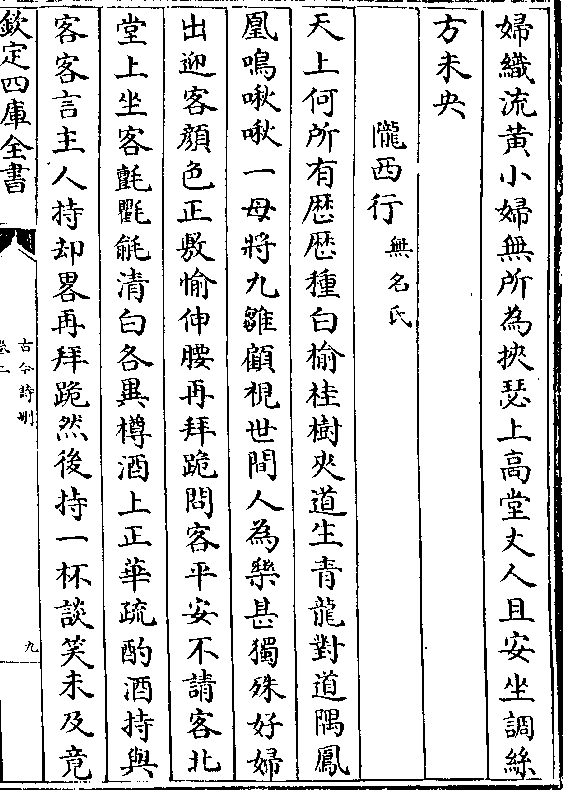 婦織流黄小婦無所為挾瑟上高堂丈人且安坐調絲
方未央
隴西行無名氏
天上何所有歴歴種白榆桂樹夾道生青龍對道隅鳳
凰鳴啾啾一母將九雛顧視世間人為樂甚獨殊好婦
出迎客顔色正敷愉伸腰再拜跪問客平安不請客北
堂上坐客氈氍毹清白各異樽酒上正華疏酌酒持與
客客言主人持却畧再拜跪然後持一杯談笑未及竟
欽定四庫全書
古今詩刪
卷二
九